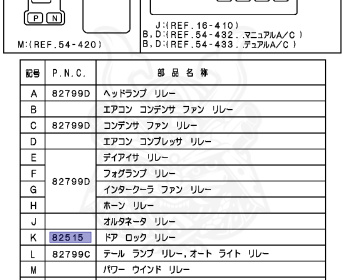 P N
M:(REF.54-420)
J:(REF.16-410)
B,D:(REF.54-432. マニュアルA/C )
B,D:(REF.54-433. デュアルA/C )
記号 P.N.C. 部品名称
A 82799D ヘッドランプ リレー
B エアコン コンデンサ ファン リレー
C 82799D コンデンサ ファン リレー
D エアコン コンプレッサ リレー
E デイアイサ リレー
F フォグランプ リレー
82799D
G インタークーラ ファン リレー
H ホーン リレー
J オルタネータ リレー
K 82515 ドア ロック リレー
L 82799C テール ランプ リレー,オート ライト リレー
M パワー ウインド リレー